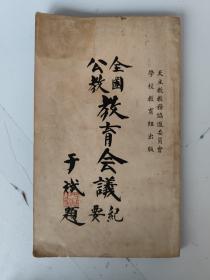 天主教教務協進委員會
學校教育組出版
全國
公教
教育會議
紀
要
于斌題